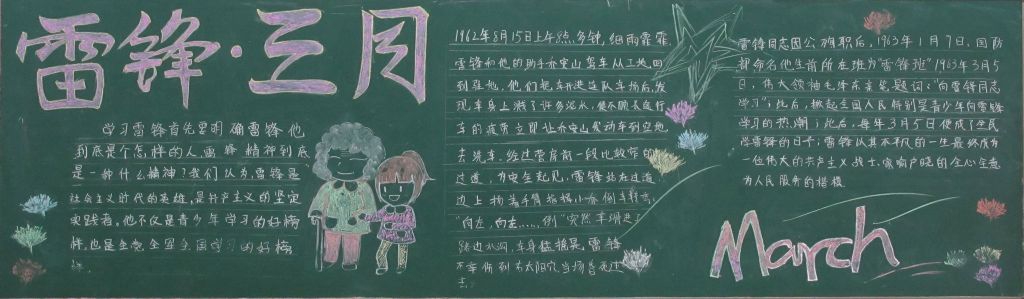 雷锋·三月
学习雷锋首先要明确雷锋他
到底是个怎样的人,雷锋精神到底
是一种什么精神?我们认为,雷锋是
社会主义时代的英雄,是共产主义的坚定
实践者。他不仅是青少年学习的好榜
样,也是全党全军全国学习的好榜
样.
1962年8月15日上午8点多钟,细雨霏霏,
雷锋和他的助手乔安山驾车从工地回
到驻地。他们把车开进连队车场后,发
现车身上溅了许多泥水,便不顾长途行
车的疲劳立即让乔安山发动车到空地
去洗车.经过营房前一段比较窄的
过道,为安全起见,雷锋站在过道
边上扬着手臂指挥小乔倒车转弯:
“向左,向左……倒”突然车滑进了
路边水沟,车身猛摇晃,雷锋
不幸
雷锋同志因公殉职后,1963年1月7日,国防
部命名他生前所在班为“雷锋班”1963年3月5
日,伟大领袖毛泽东亲笔题词:“向雷锋同志
学习”;此后,掀起全国人民特别是青少年向雷锋
学习的热潮;此后,每年3月5日便成了全民
学雷锋的日子,雷锋以其不平凡的一生最终成为
一位伟大的共产主义战士,家喻户晓的全心全意
为人民服务的楷模.
March